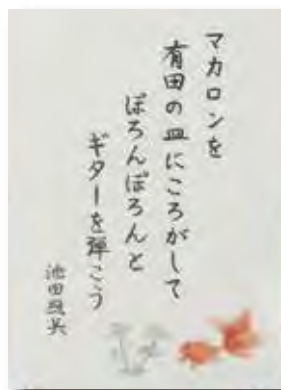 マカロンを
有田の皿にころがして
ぽろんぽろんと
ギターを弾こう
池田